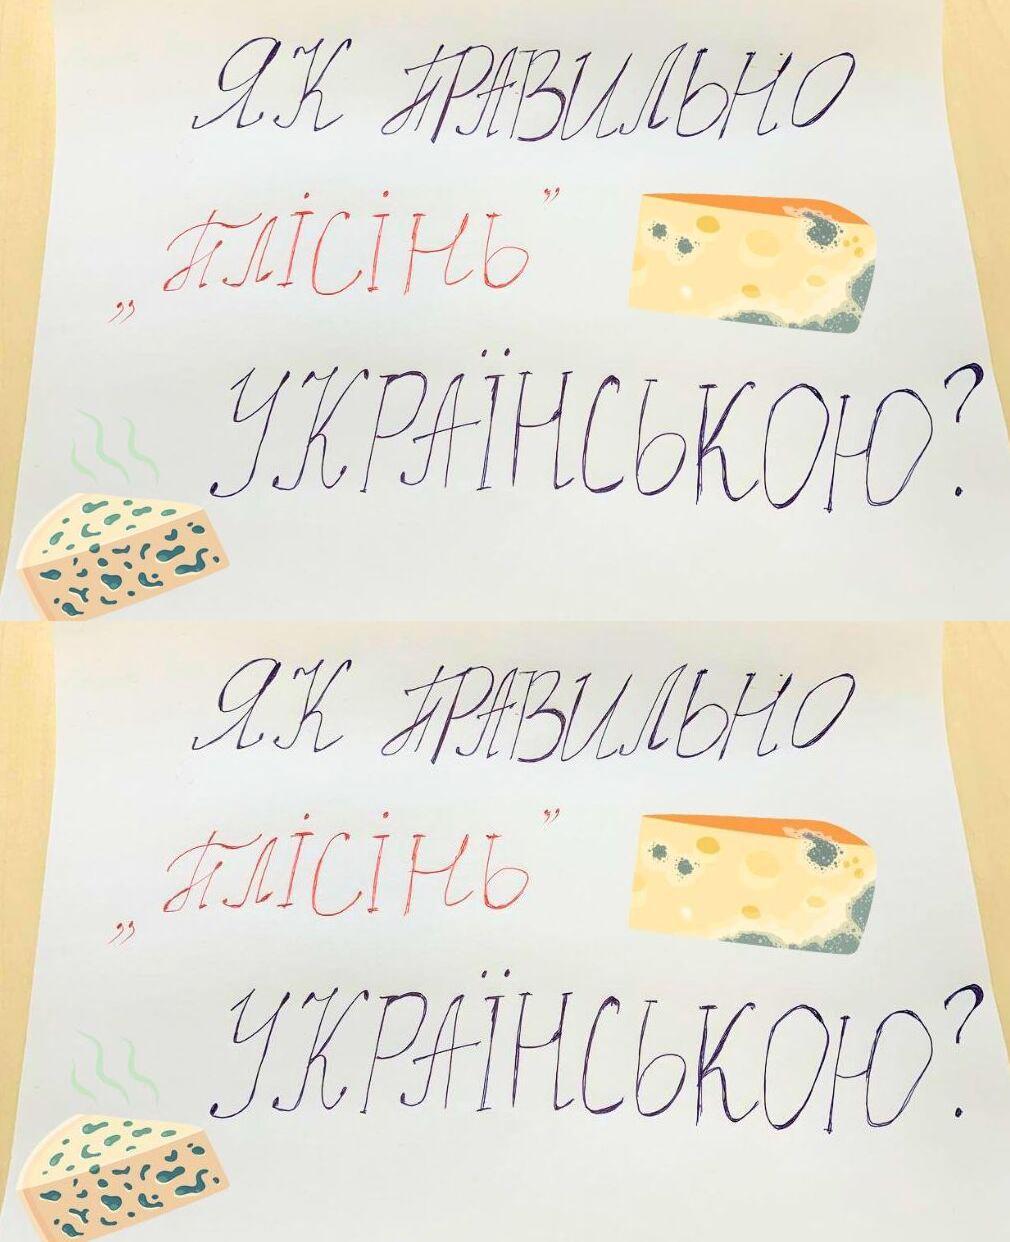 ЯК ПРАВИЛЬНО
„ПЛІСІНЬ”
УКРАЇНСЬКОЮ?
ЯК ПРАВИЛЬНО
„ПЛІСІНЬ”
УКРАЇНСЬКОЮ?